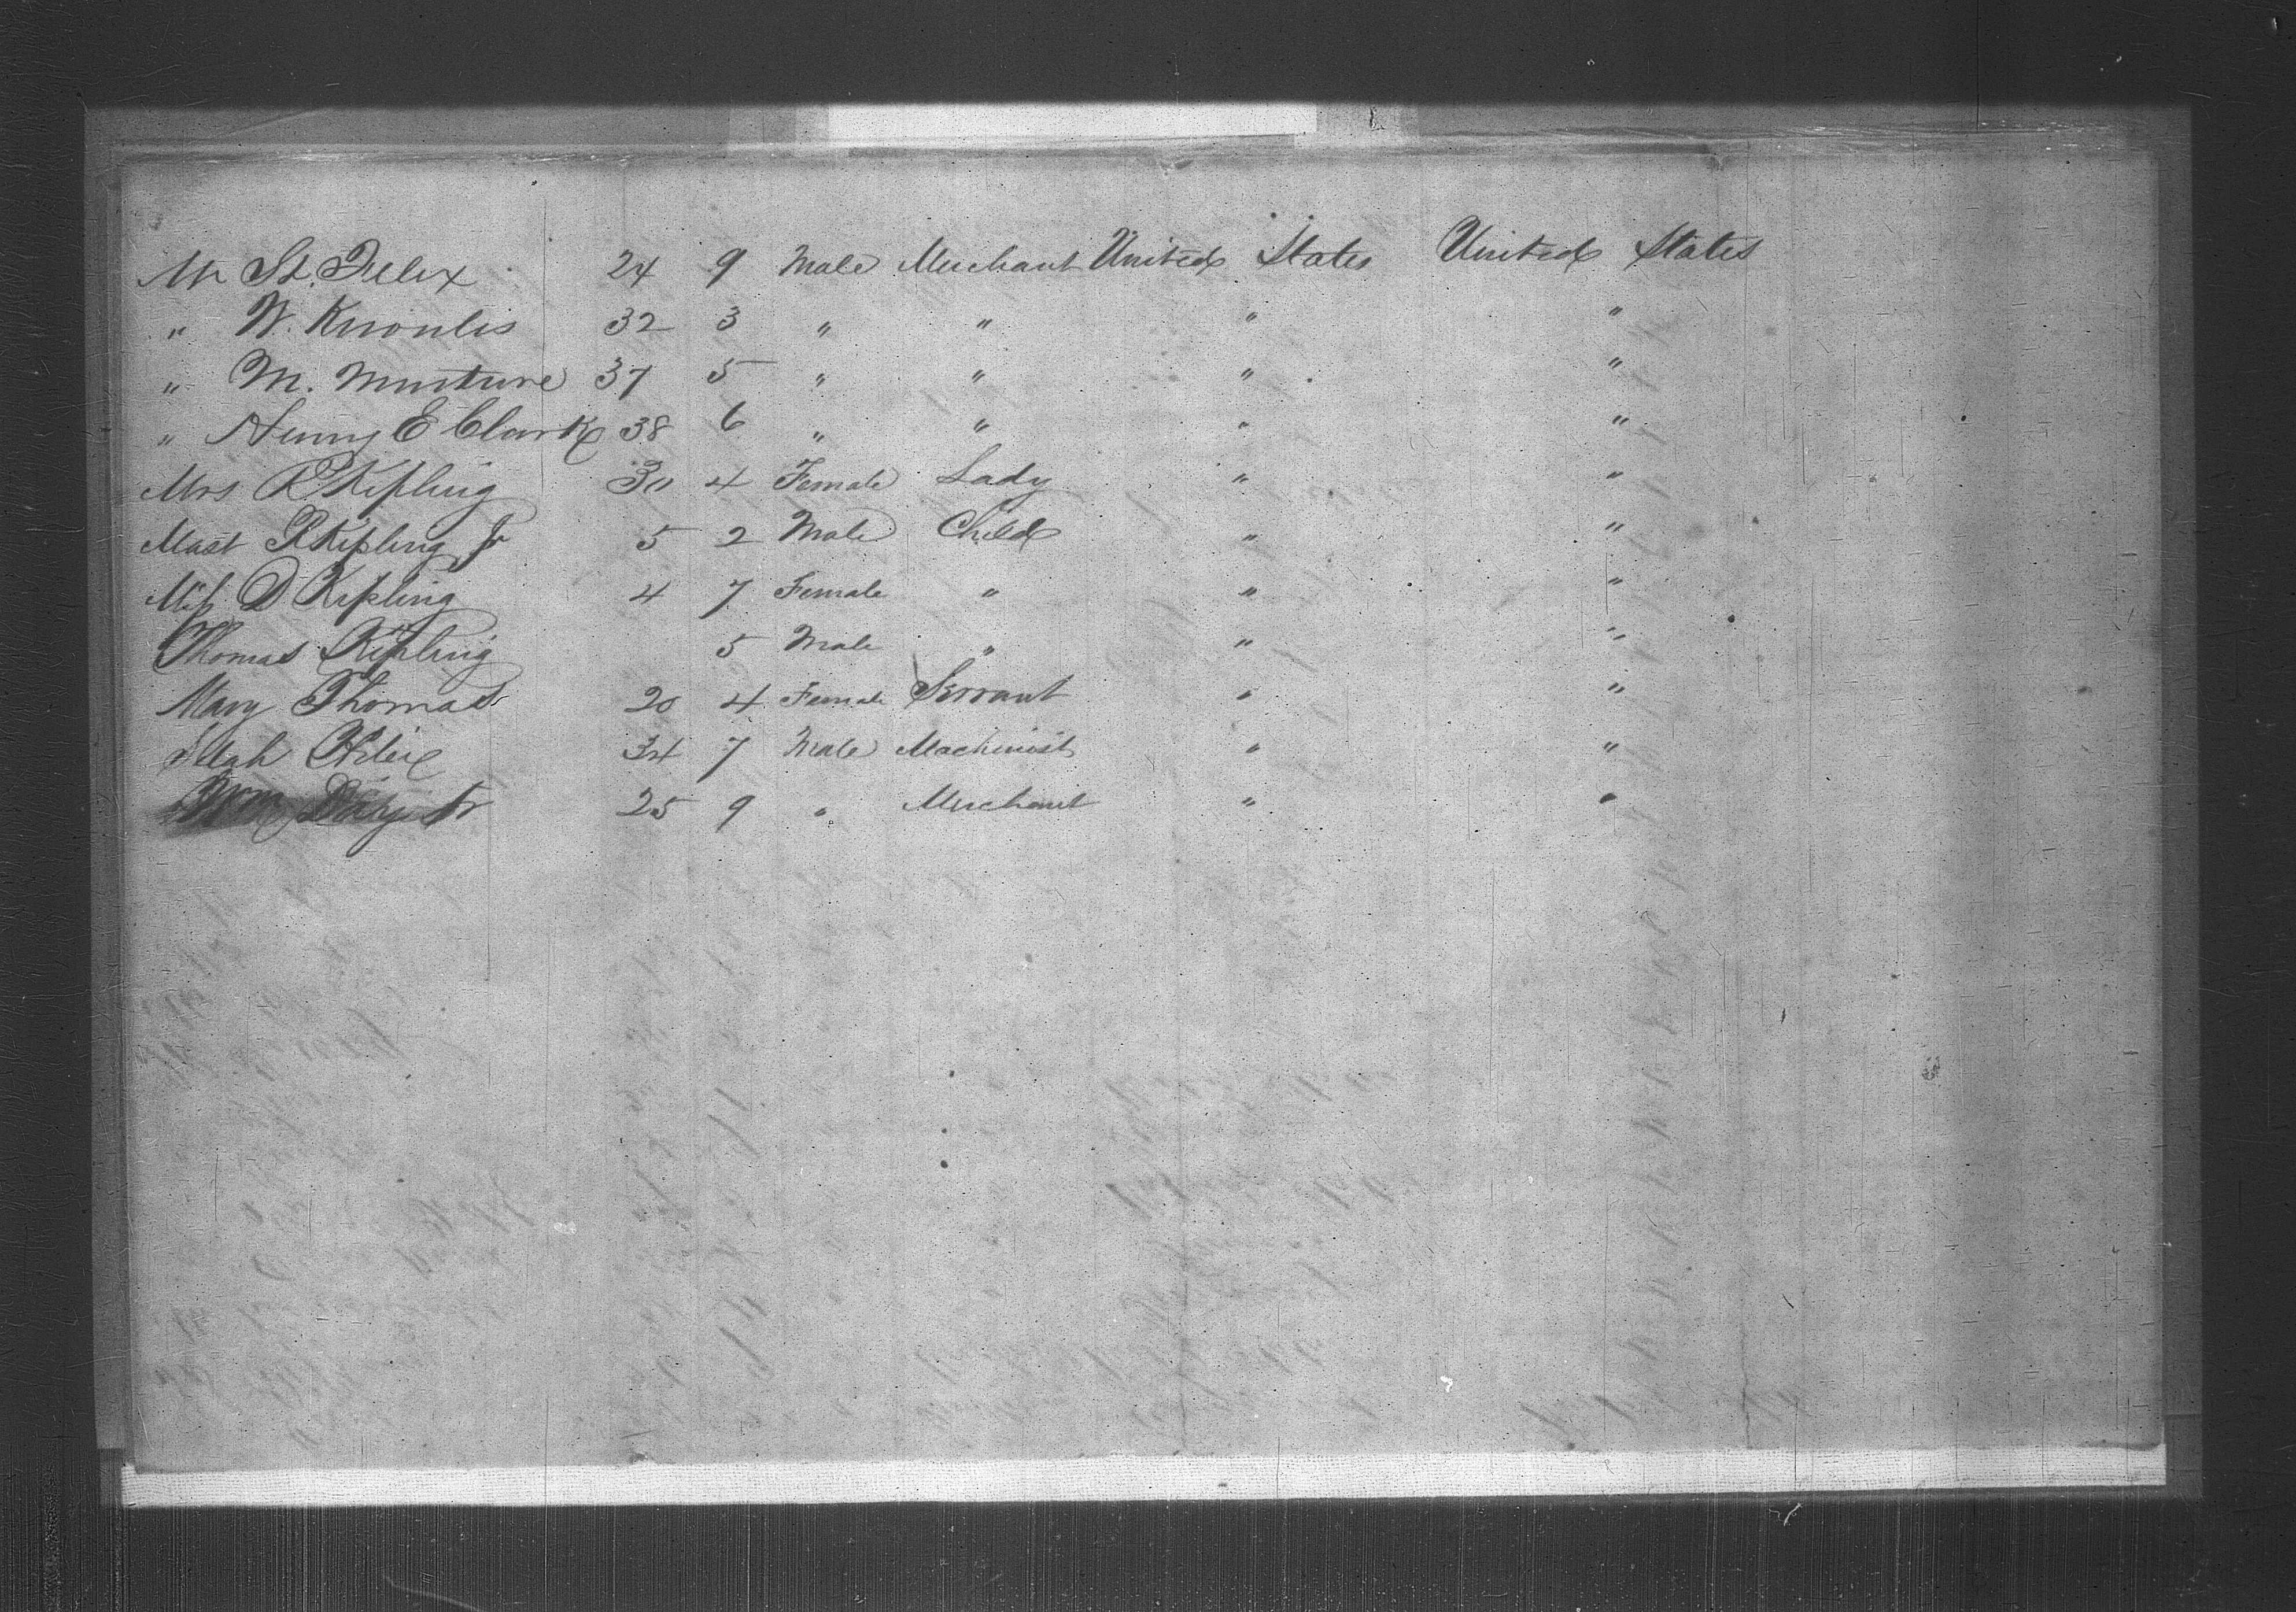 Mr St. Felix 24 9 Male Merchant United States United States
" W. Knowles 32 3 " " " "
" M. 37 5 " " " "
" Henry E Clark 38 6 " " " "
Mrs R Kipling 30 4 Female Lady " "
Mast R Kipling Jr 5 2 Male Child " "
Miss D Kipling 4 7 Female " " "
Thomas Kipling 5 Male " " "
Mary Thomas 20 4 Female Servant " "
34 7 Male Machinist " "
Wm Day Jr 25 9 " Merchant " "